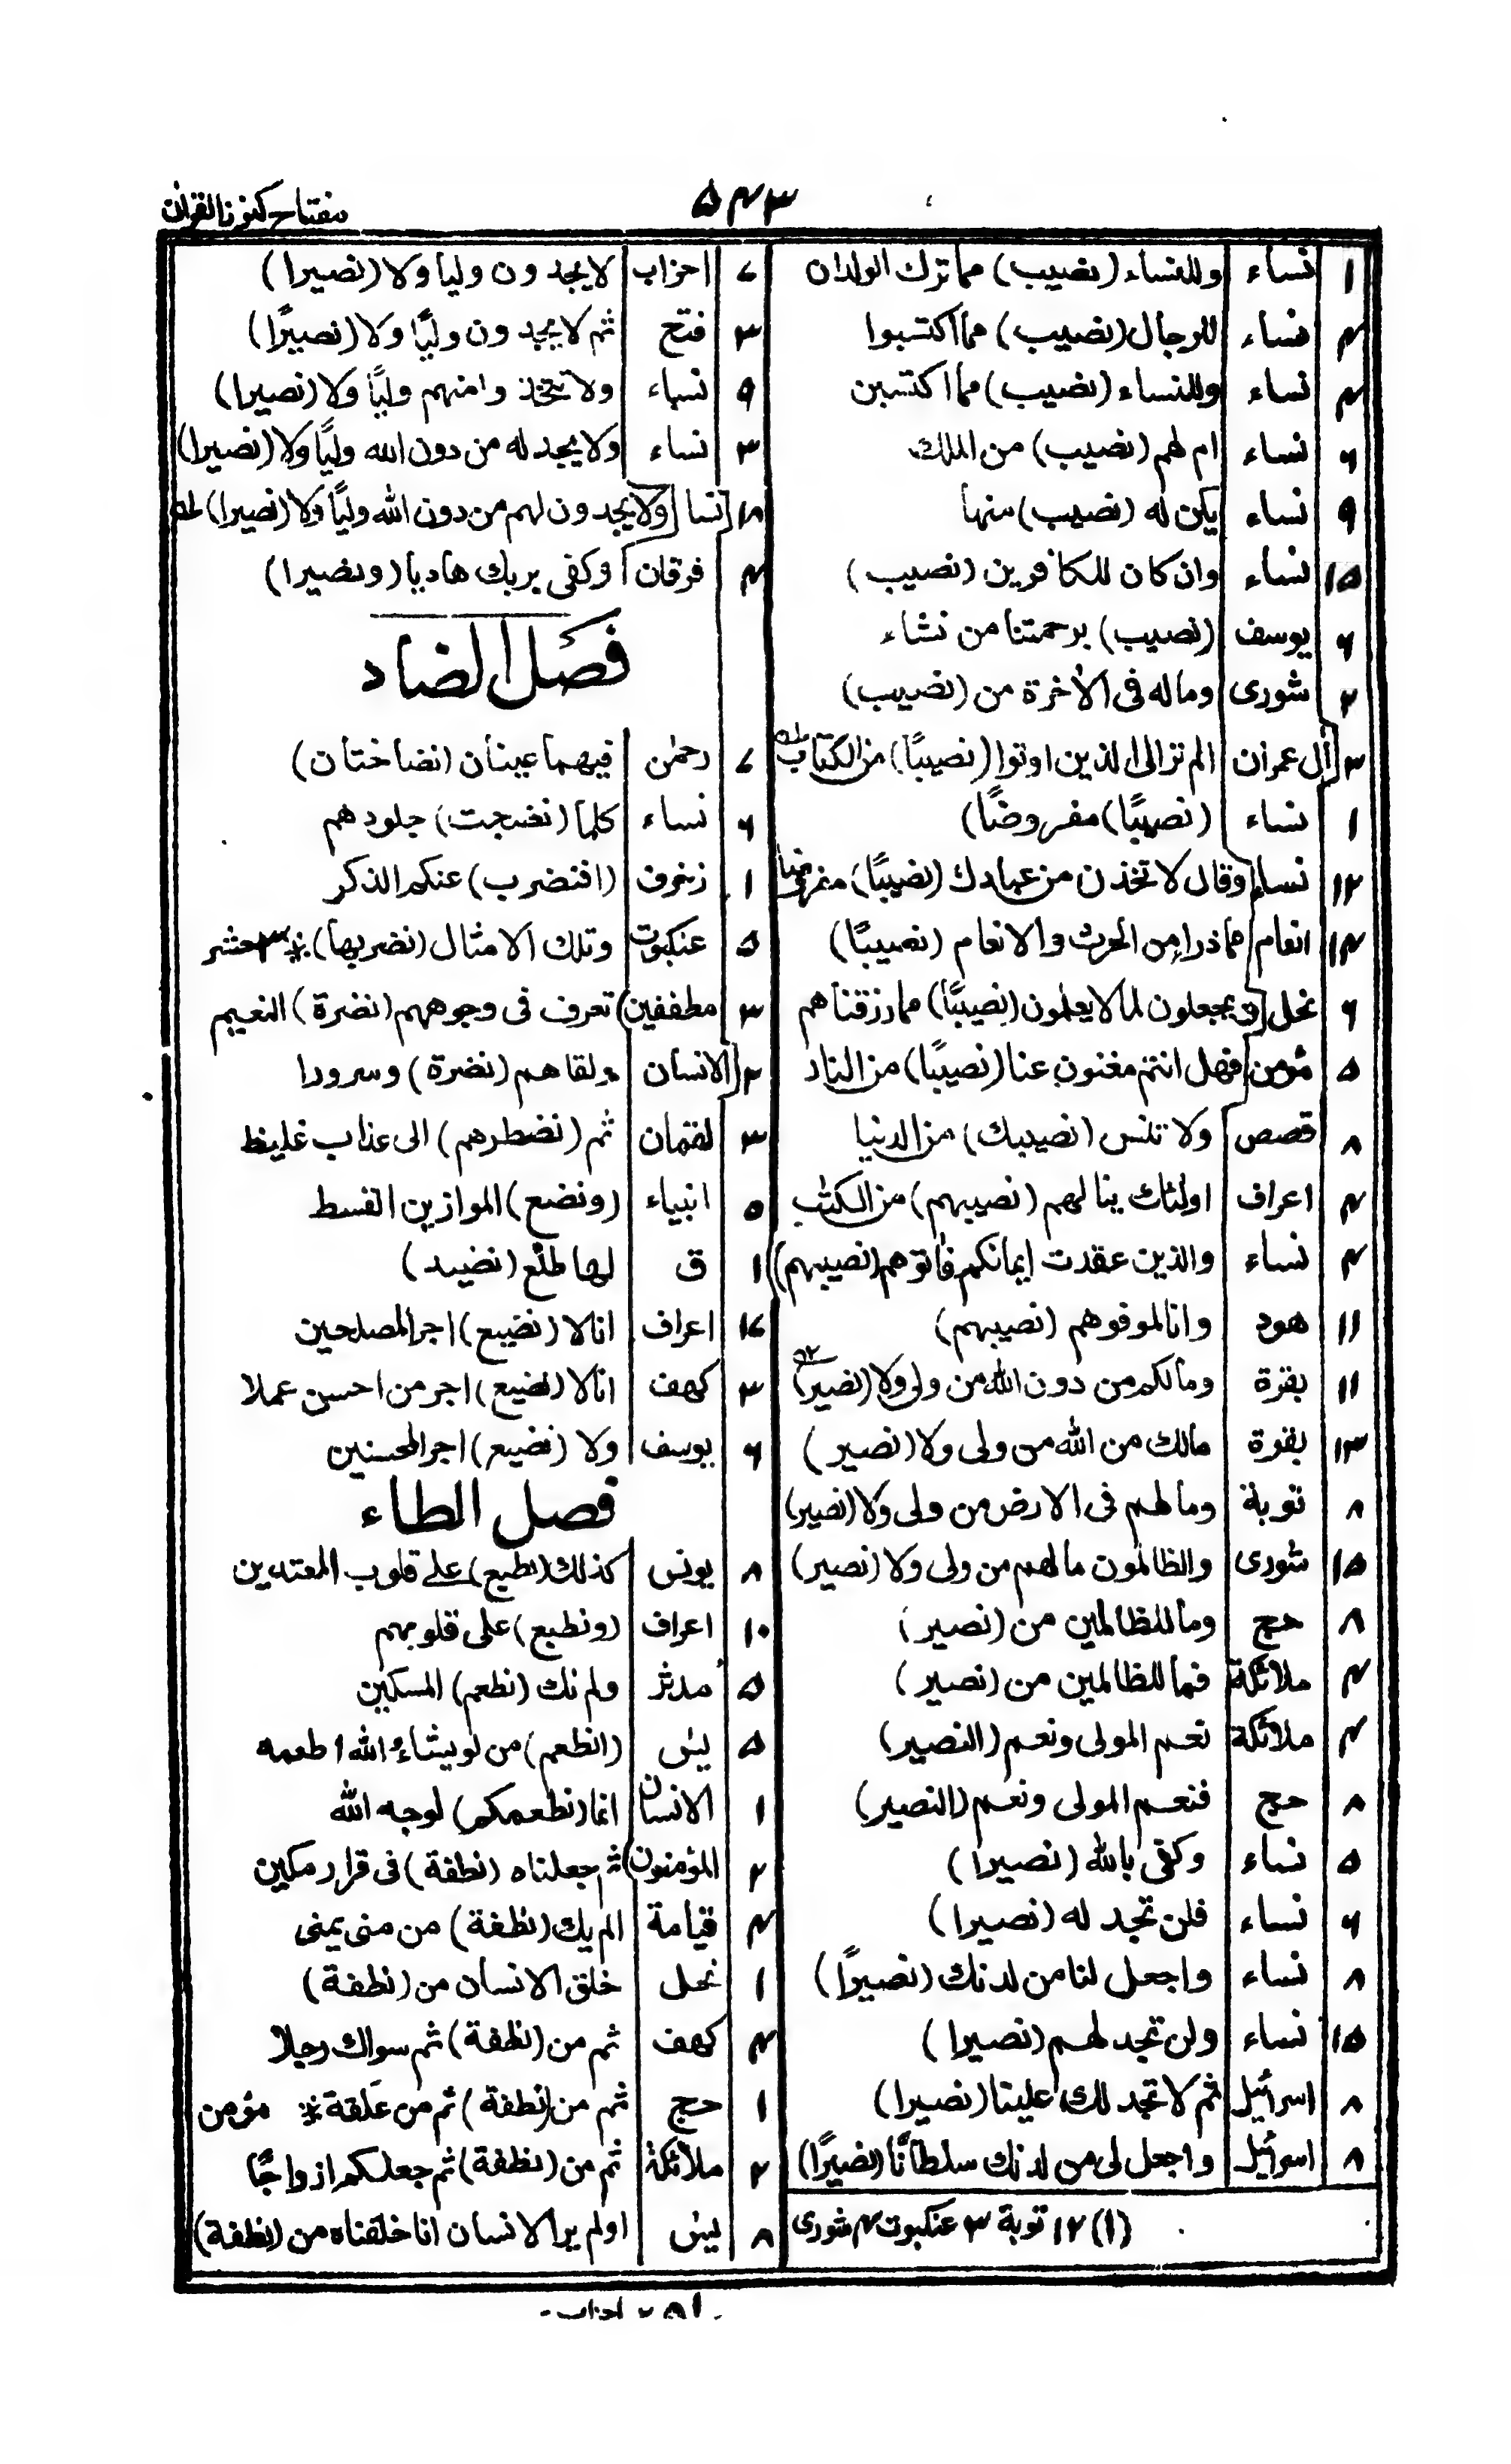 ۵۴۳
مفتاح کنوز القرآن
۱ نساء وللنساء (نصيب) مما ترك الولدان
۴ نساء للرجال (نصيب) مما اكتسبوا
۴ نساء وللنساء (نصيب) مما اكتسبن
۶ نساء ام لهم (نصيب) من الملك
۹ نساء يكن له (نصيب) منها
۱۵ نساء وان كان للكافرين (نصيب)
۶ يوسف (نصيب) برحمتنا من نشاء
۲ شورى وماله فى الأخرة من (نصيب)
۳ أل عمران الم تر الى الذين اوتوا (نصيبًا) من الكتاب
۱ نساء (نصيبًا) مفروضًا
۱۲ نساء وقال لاتخذن من عبادك (نصيبًا) مفروضا
۱۴ انعام مما ذرا من الحرث والانعام (نصيبًا)
۶ نحل ويجعلون لما لا يعلمون (نصيبًا) مما رزقناهم
۵ مؤمن فهل انتم مغنون عنا (نصيبًا) من النار
۸ قصص ولا تنس (نصيبك) من الدنيا
۴ اعراف اولئك ينالهم (نصيبهم) من الكتب
۴ نساء والذين عقدت ايمانكم فاتوهم (نصيبهم)
۱۱ هود وانا لموفوهم (نصيبهم)
۱۱ بقرة ومالكم من دون الله من ولى ولا (نصير)
۱۳ بقرة مالك من الله من ولى ولا (نصير)
۸ توبة ومالهم فى الارض من ولى ولا (نصير)
۱۵ شورى والظالمون مالهم من ولى ولا (نصير)
۸ حج وما للظالمين من (نصير)
۴ ملائكة فما للظالمين من (نصير)
۴ ملائكة نعم المولى ونعم (النصير)
۸ حج فنعم المولى ونعم (النصير)
۵ نساء وكفى بالله (نصيرا)
۶ نساء فلن تجد له (نصيرا)
۸ نساء واجعل لنا من لدنك (نصيرًا)
۱۵ نساء ولن تجد لهم (نصيرا)
۸ اسرائيل ثم لا تجد لك علينا (نصيرا)
۸ اسرائيل واجعل لى من لدنك سلطانًا (نصيرًا)
(۱) ۱۲ توبة ۳ عنكبوت ۴ شورى
۷ احزاب لايجدون وليا ولا (نصيرا)
۳ فتح ثم لايجدون وليًا ولا (نصيرًا)
۹ نساء ولا تتخذوا منهم وليًا ولا (نصيرا)
۳ نساء ولا يجد له من دون الله وليًا ولا (نصيرا)
۱۸ نسا ولا يجدون لهم من دون الله وليًا ولا (نصيرا)
۴ فرقان وكفى بربك هاديا (ونصيرا)
فصل الضاد
۷ رحمن فيهما عينان (نضاختان)
۶ نساء كلما (نضجت) جلودهم
۱ زخرف (افنضرب) عنكم الذكر
۵ عنكبوت وتلك الامثال (نضربها) * ۳ حشر
۳ مطففين تعرف فى وجوههم (نضرة) النعيم
۲ الانسان ولقاهم (نضرة) وسرورا
۳ لقمان ثم (نضطرهم) الى عذاب غليظ
۵ انبياء (ونضع) الموازين القسط
۱ ق لها طلع (نضيد)
۱۷ اعراف انا لا (نضيع) اجر المصلحين
۳ كهف انا لا (نضيع) اجر من احسن عملا
۶ يوسف ولا (نضيع) اجر المحسنين
فصل الطاء
۸ يونس كذلك (نطبع) على قلوب المعتدين
۱۰ اعراف (ونطبع) على قلوبهم
۵ مدثر ولم نك (نطعم) المسكين
۵ يس (انطعم) من لو يشاء الله اطعمه
۱ الانسان انما (نطعمكم) لوجه الله
۲ المؤمنون ثم جعلناه (نطفة) فى قرار مكين
۴ قيامة الم يك (نطفة) من منى يمنى
۱ نحل خلق الانسان من (نطفة)
۴ كهف ثم من (نطفة) ثم سواك رجلا
۱ حج ثم من (نطفة) ثم من علقة * مؤمن
۲ ملائكة ثم من (نطفة) ثم جعلكم ازواجًا
۸ يس اولم ير الانسان انا خلقناه من (نطفة)
احزاب